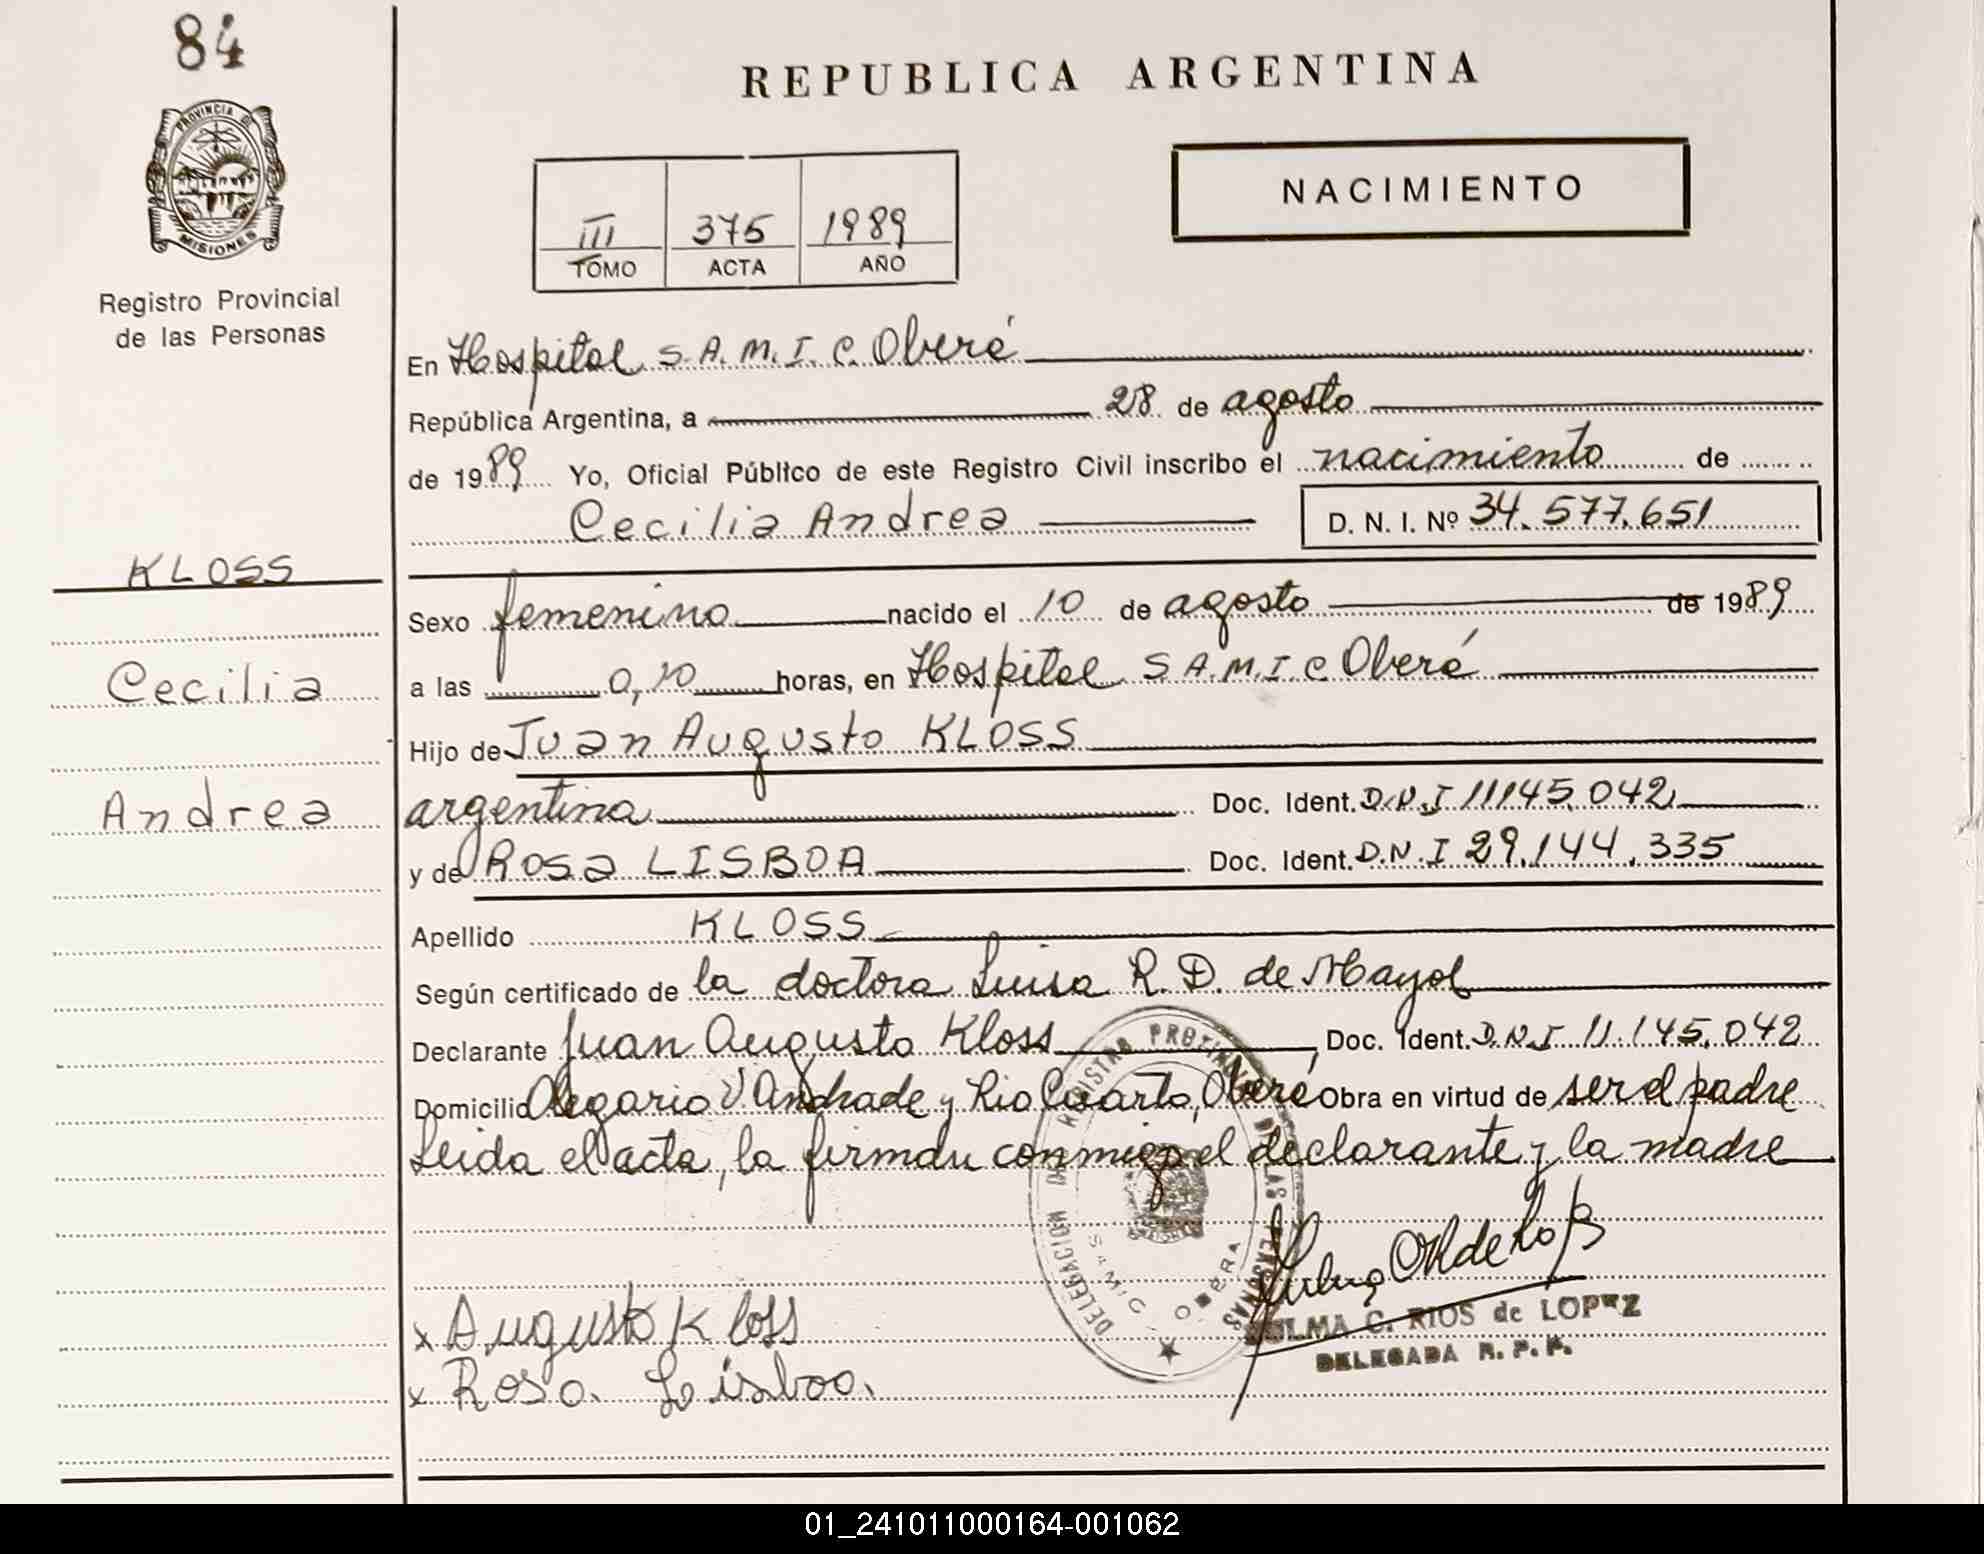 84
PROVINCIA DE
MISIONES
Registro Provincial
de las Personas
KLOSS
Cecilia
Andrea
REPUBLICA ARGENTINA
III 375 1989
TOMO ACTA AÑO
NACIMIENTO
En Hospital S.A.M.I.C. Oberá
República Argentina, a 28 de agosto
de 1989 Yo, Oficial Público de este Registro Civil inscribo el nacimiento de
Cecilia Andrea D. N. I. Nº 34.577.651
Sexo femenino nacido el 10 de agosto de 1989
a las 0,10 horas, en Hospital S.A.M.I.C Oberá
Hijo de Juan Augusto KLOSS
argentina Doc. Ident. D.N.I 11145.042
y de Rosa LISBOA Doc. Ident. D.N.I 29.144.335
Apellido KLOSS
Según certificado de la doctora Luisa R. D. de Mayol
Declarante Juan Augusto Kloss, Doc. Ident. D.N.I 11.145.042
Domicilio Olegario V. Andrade y Rio Cuarto, Oberá Obra en virtud de ser el padre
Leida el acta, la firman conmigo el declarante y la madre
DELEGACION DEL REGISTRO PROVINCIAL DE LAS PERSONAS
SAMIC - OBERA
x Augusto Kloss
x Rosa Lisboa.
C. RIOS de LOPEZ
DELEGADA R. P. P.
01_241011000164-001062